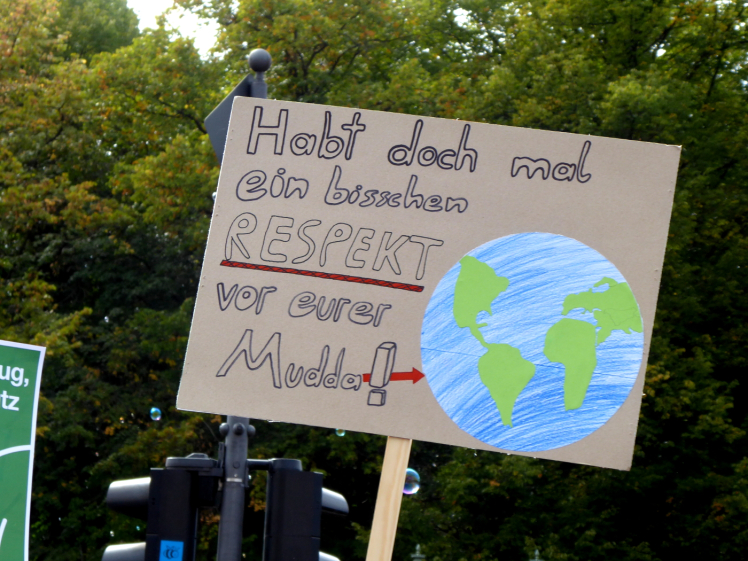 Habt doch mal
ein bisschen
RESPEKT
vor eurer
Mudda!
ug,
tz